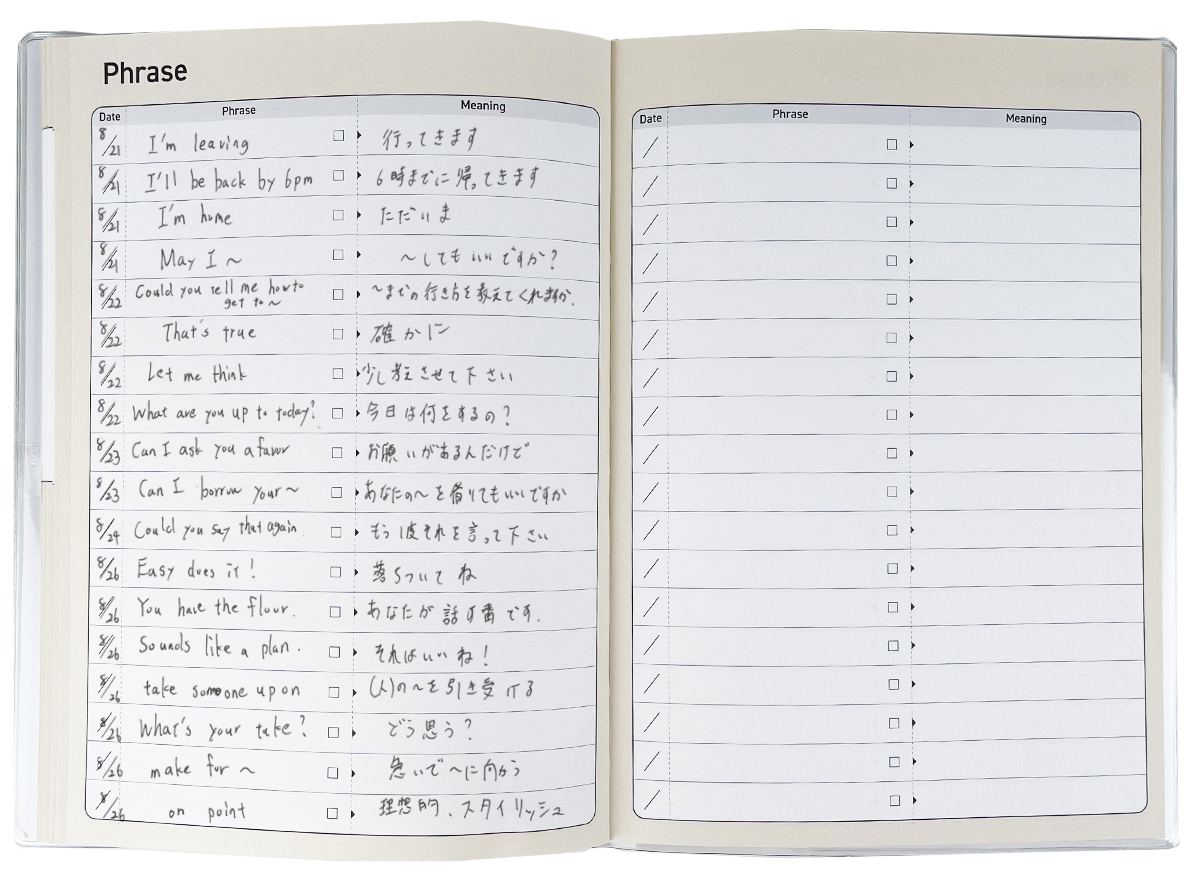 Phrase
Date Phrase Meaning
8/21 I'm leaving 行ってきます
8/21 I'll be back by 6pm 6時までに帰ってきます
8/21 I'm home ただいま
8/21 May I ~ ～してもいいですか?
8/22 Could you tell me how to get to ~ ～までの行き方を教えてくれますか.
8/22 That's true 確かに
8/22 Let me think 少し考えさせて下さい
8/22 What are you up to today? 今日は何をするの?
8/23 Can I ask you a favor お願いがあるんだけど
8/23 Can I borrow your ~ あなたの～を借りてもいいですか
8/24 Could you say that again. もう それを言って下さい
8/26 Easy does it! 落ちついてね
8/26 You have the flour. あなたが話す番です.
8/26 Sounds like a plan. それはいいね!
8/26 take someone up on (人)の～を引き受ける
8/26 What's your take? どう思う?
8/26 make for ~ 急いで～に向かう
8/26 on point 理想的、スタイリッシュ
Date Phrase Meaning